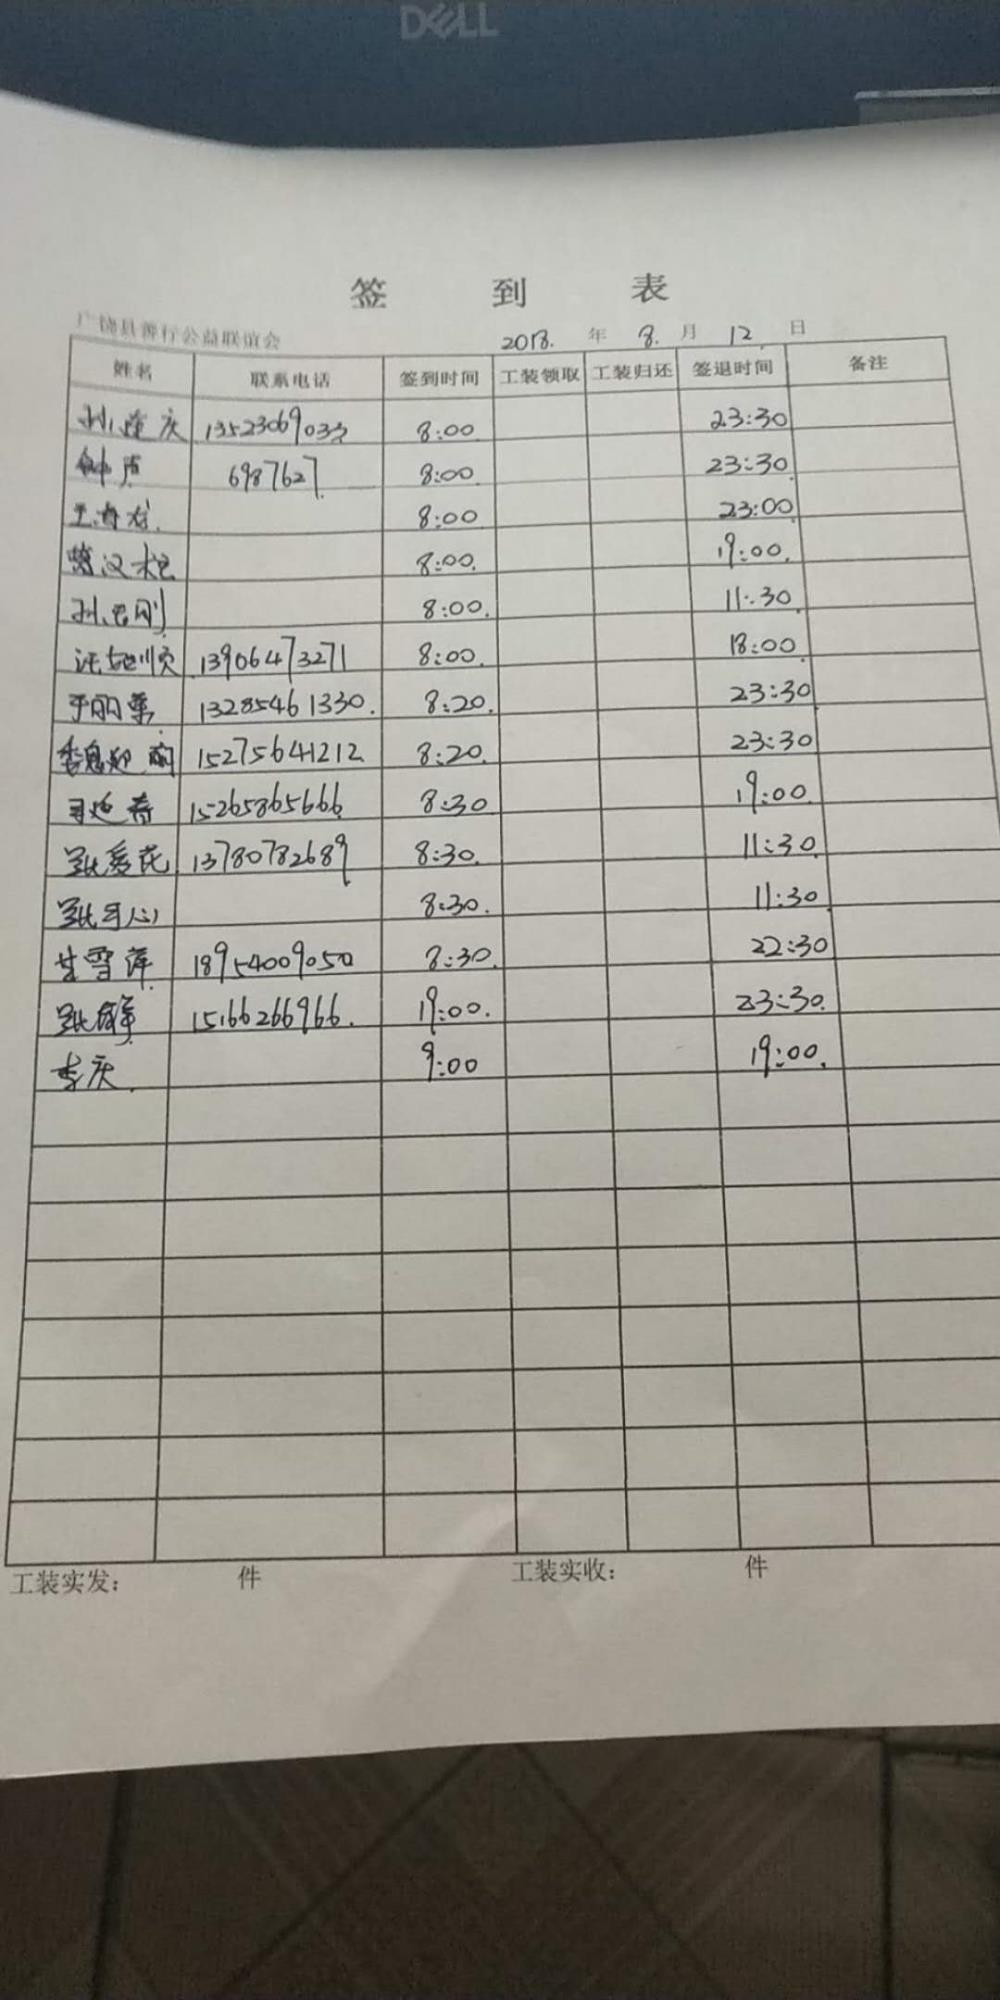 DELL
签 到 表
广饶县善行公益联谊会 2018. 年 8. 月 12. 日
姓名 联系电话 签到时间 工装领取 工装归还 签退时间 备注
孙莲庆 13523069033 8:00 23:30
6987627 8:00 23:30
8:00 23:00
8:00. 19:00.
8:00. 11:30
13906473271 8:00. 18:00
13285461330. 8:20. 23:30
15275641212 8:20. 23:30
15265865666 8:30 19:00.
张爱花 13780782689 8:30. 11:30
8:30. 11:30
甘雪萍 18954009050 8:30. 22:30
15166266966. 19:00. 23:30.
李庆. 9:00 19:00.
工装实发: 件 工装实收: 件